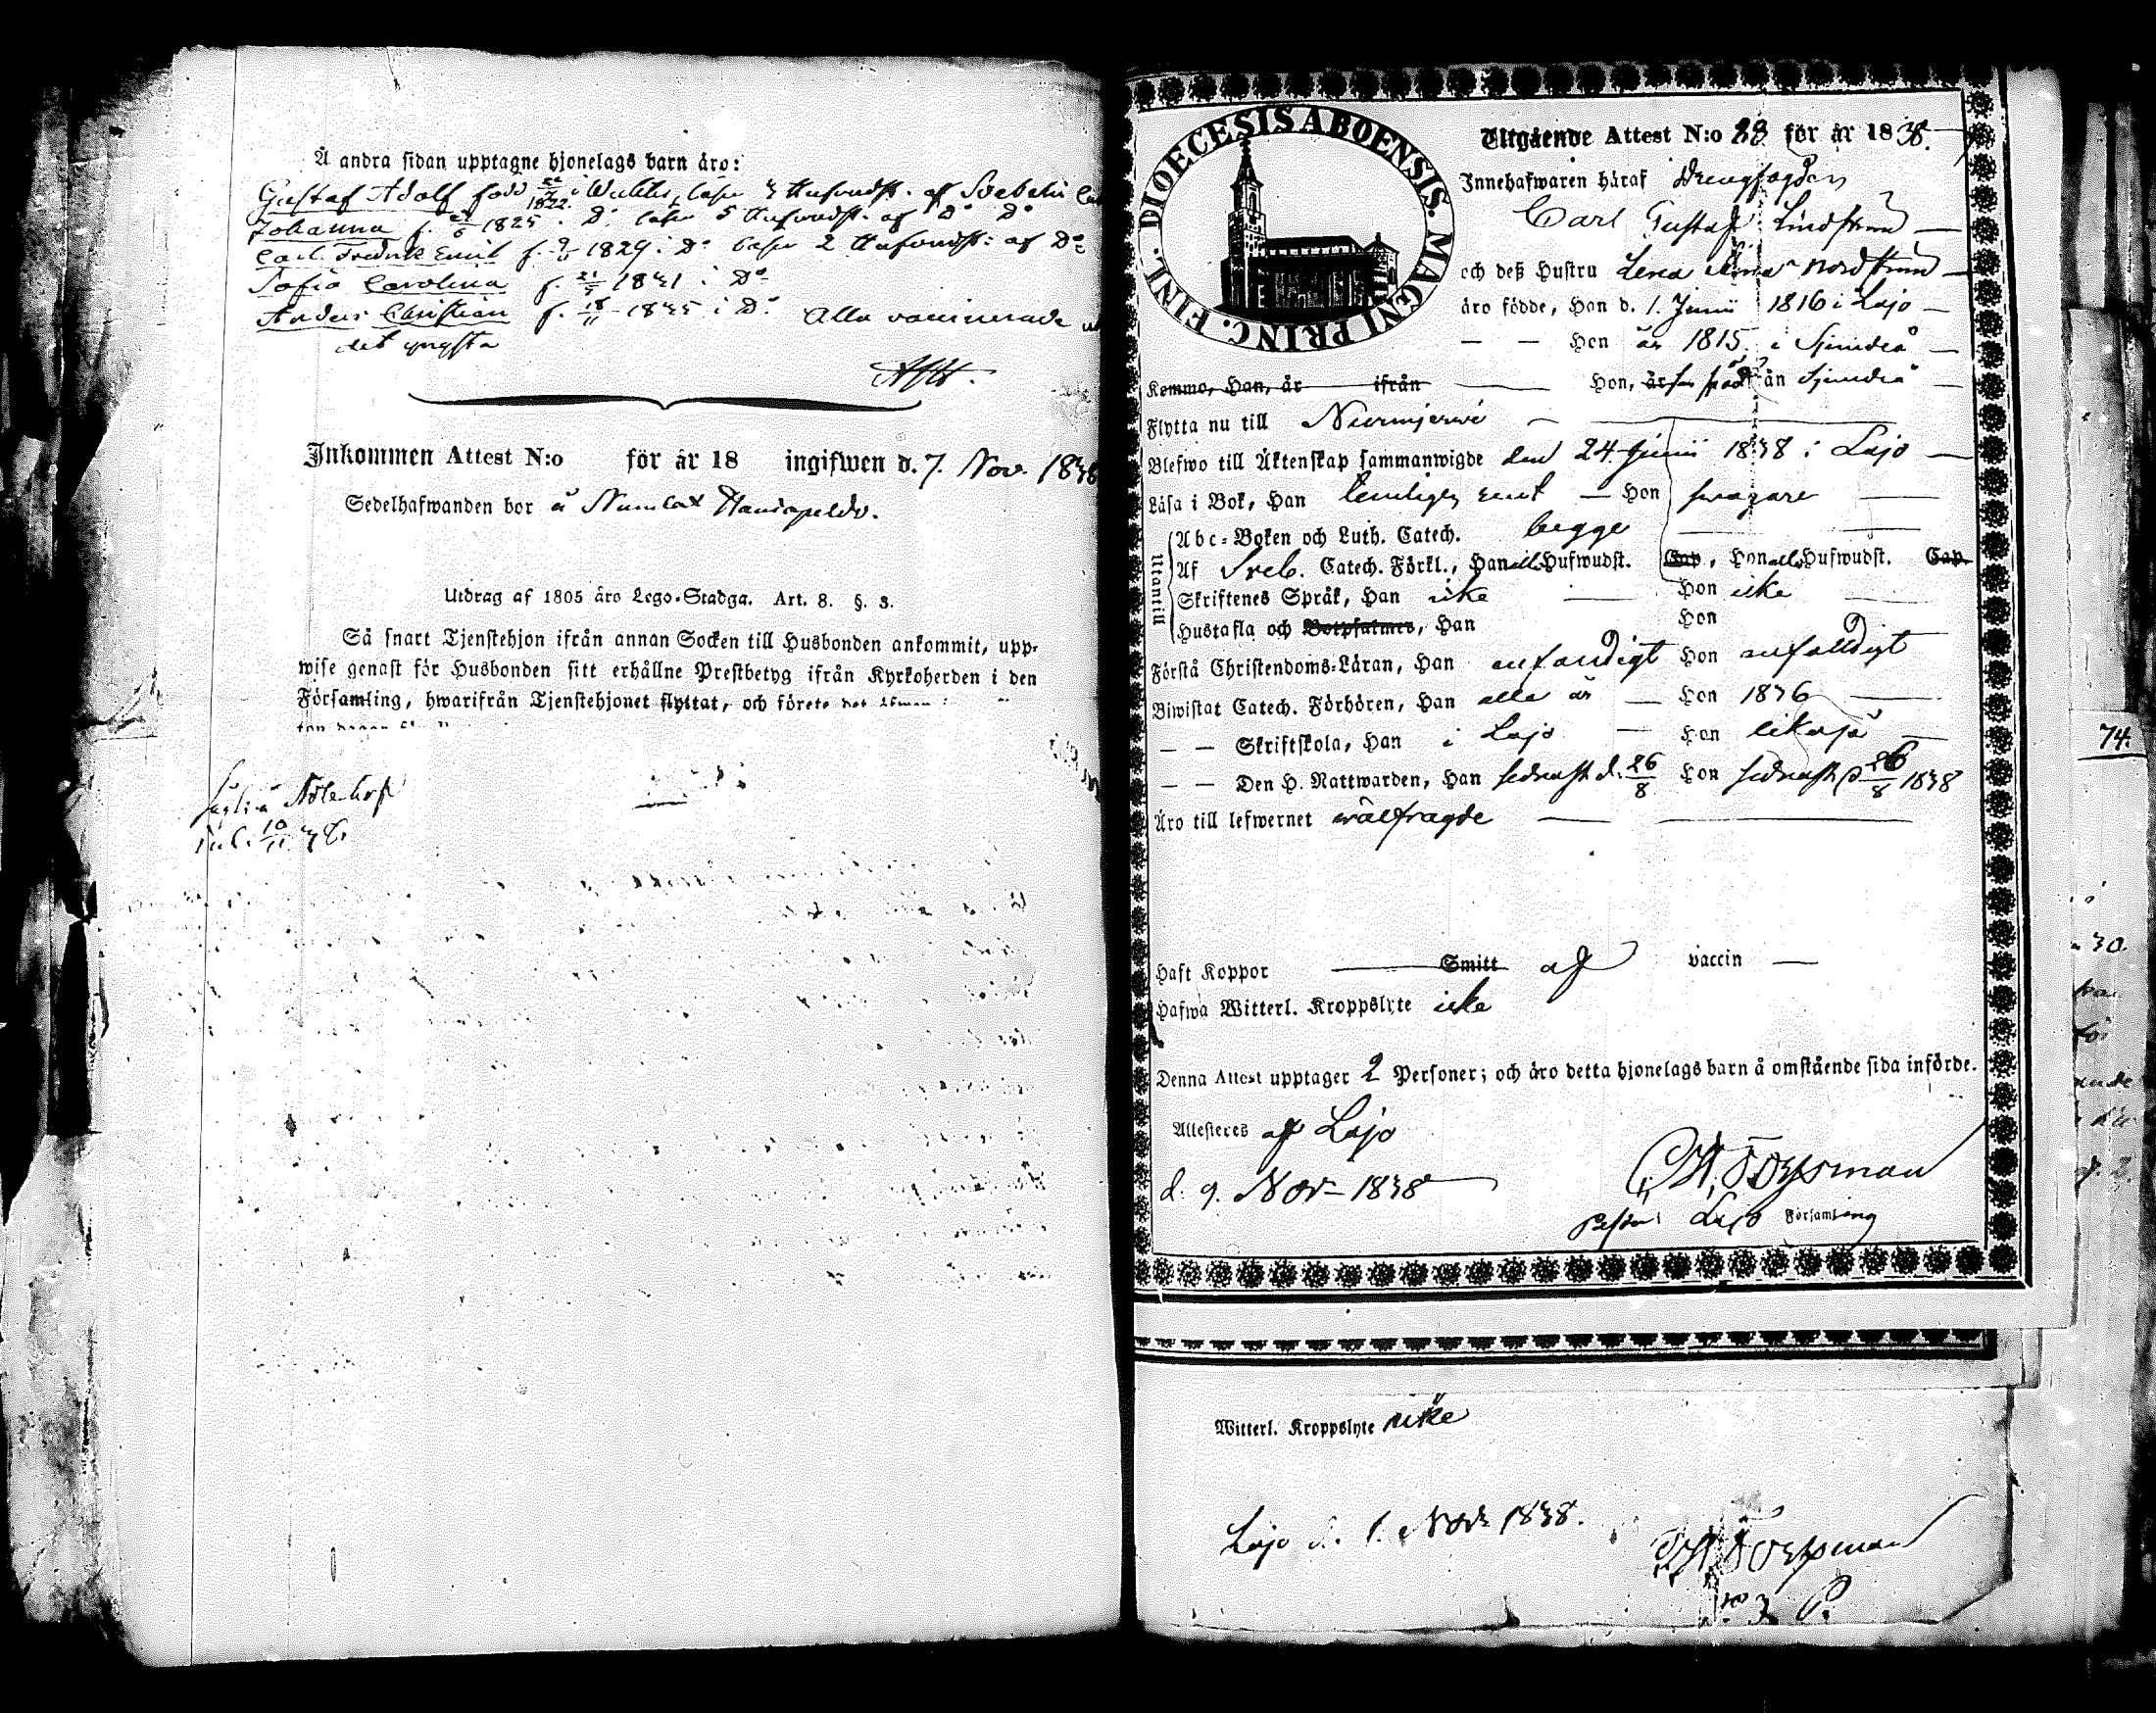 Å andra sidan upptagne hjonelags barn äro:
Gustaf Adolf född 1822 i läser 3 Hufvudst. af Svebelii
Johanna f. 1825 i Do läser 5 Hufvudst. af Do Do
Carl Fredrik Emil f. 1829 i Do läser 2 Hufvudst: af Do
Sofia Carolina f. 1831 i Do
Anders Christian f. 18/11 1835 i Do Alla vaccinerade
det yngsta
Inkommen Attest N:o för år 18 ingifwen d. 7. Nov. 1838
Sedelhafwanden bor å Numlax
Utdrag af 1805 års Lego-Stadga. Art. 8. §. 3.
Så snart Tjenstehjon ifrån annan Socken till Husbonden ankommit, upp-
wise genast för Husbonden sitt erhållne Prestbetyg ifrån Kyrkoherden i den
Församling, hwarifrån Tjenstehjonet flyttat, och förete
10/11 38
DIOECESIS ABOENSIS. MAGNI PRINC. FINL.
Utgående Attest N:o 88 för år 1838.
Innehafwaren häraf Drengfogden
Carl Gustaf Lindström
och deß Hustru Lena Stina Nordström
äro födde, Han d. 1. Junii 1816 i Lojo
— — Hon år 1815 i Sjundeå
Kommo, Han, år ifrån Hon, år från Sjundeå
Flytta nu till Nurmijerwi
Blefwo till Äktenskap sammanwigde den 24 Junii 1838 i Lojo
Läsa i Bok, Han temligen rent Hon swagare
Utantill
Abc-Boken och Luth. Catech. begge
Af Sveb. Catech. Förkl., Han alla Hufwudst. Cap, Hon alla Hufwudst. Cap.
Skriftenes Språk, Han icke Hon icke
Hustafla och Botpsalmer, Han Hon
Förstå Christendoms-Läran, Han enfaldigt Hon enfalldigt
Biwistat Catech. Förhören, Han alla år Hon 1836
— — Skriftskola, Han i Lojo Hon likaså
— — Den H. Nattwarden, Han sednast d. 26/8 Hon sednast d 26/8 1838
Äro till lefwernet wälfrägde
Haft Koppor Smitt af vaccin
Hafwa Witterl. Kroppslyte icke
Denna Attest upptager 2 Personer; och äro detta hjonelags barn å omstående sida införde.
Attesteres af Lojo
d. 9. Nov 1838
C. H. Forsman
Pastor i Lojo Församling
Witterl. Kroppslyte icke
Lojo d. 1. Nov. 1838.
C. H. Forsman
74.
30.